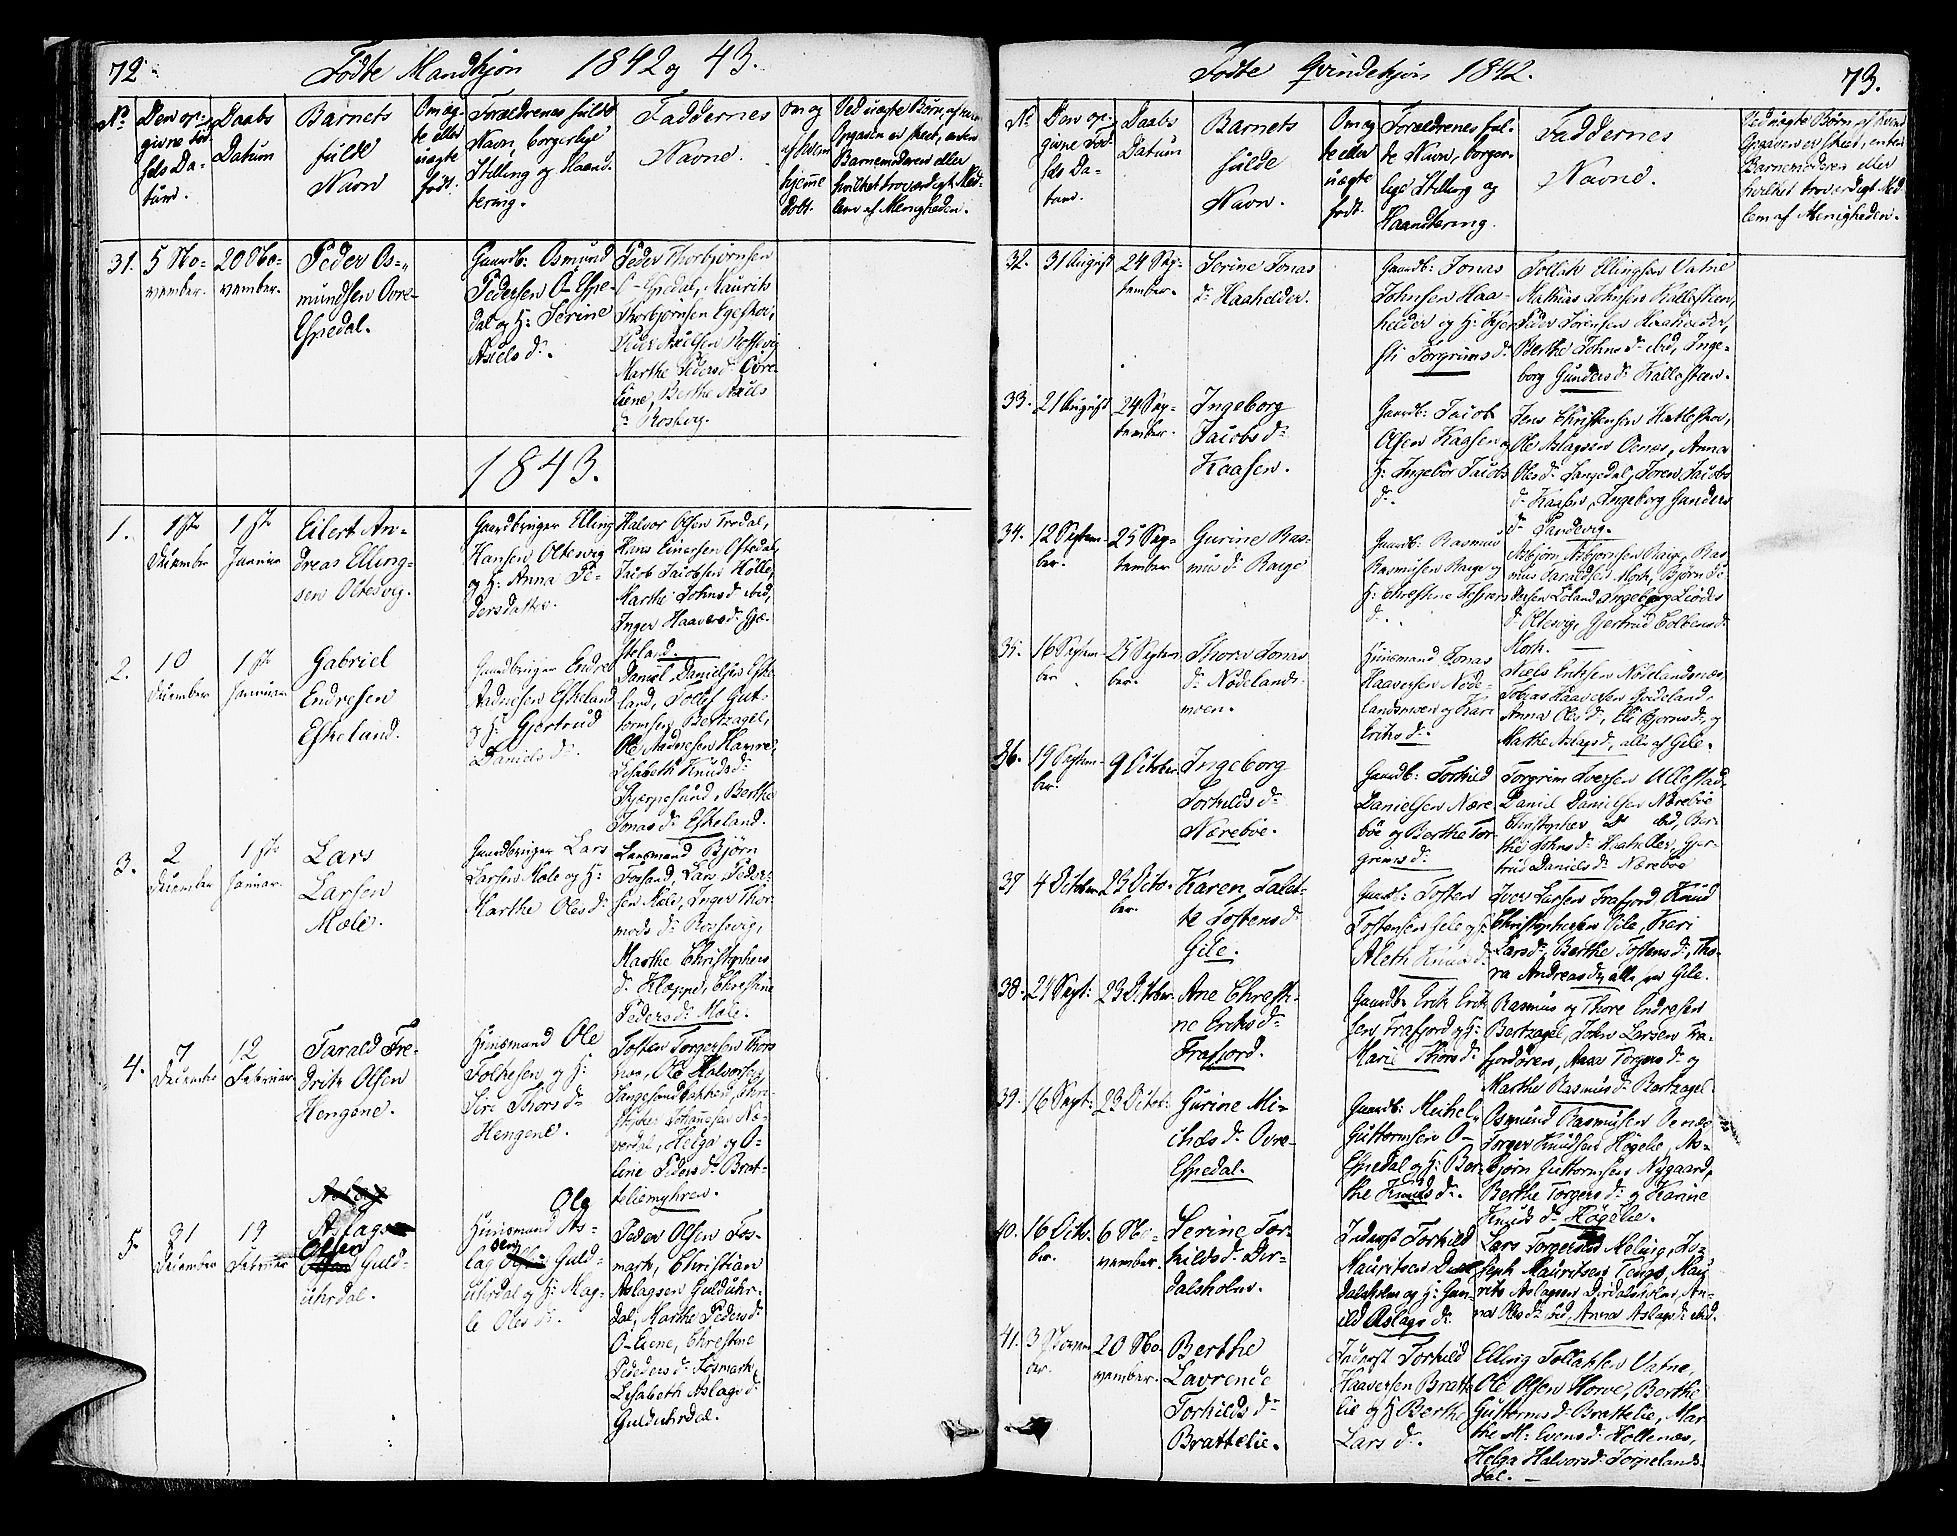 72.
Fødte Mandkjøn 1842 og 43.
No
Den op-
givne Fød-
sels Da-
tum.
Daabs
Datum
Barnets
fulde
Navn
Om æg-
te eller
uægte
født.
Forældrenes fulde
Navn, borgerlige
Stilling og Haand-
tering.
Faddernes
Navne.
Om og
af hvem
hjemme
døbt.
Ved uægte Børn, af hvem
Opgaven er skeet, enten
Barnemoderen eller
hvilket troværdigt Med-
lem af Menigheden.
31.
5 No-
vember.
20 No-
vember.
Peder Os-
mundsen Øvre-
Espedal.
Gaardb: Osmund
Pedersen Ø-Espe-
dal og H: Serine
Axels d.
Peder Thorbjørnsen
Ø-Espedal, Maurits
Thorbjørnsen Egeskov,
Peder Axelsen Rossevig
Marthe Peders d. Øvre-
Liene, Berthe Axels
d. Rosevig.
1843.
1.
1ste
December
1ste
Januar
Eilert An-
dreas Elling-
sen Oltesvig.
Gaardbruger Elling
Hansen Oltesvig
og H: Anna Pe-
dersdatter.
Halvor Olsen Frodal,
Hans Einersen Oftedal,
Jacob Jacobsen Holle
Marthe Johns d. ibid,
Inger Haavers d. Gjæ-
steland.
2.
10
December
1ste
Januar
Gabriel
Endresen
Eskeland.
Gaardbruger Endre
Aadnesen Eskeland
og H: Gjertrud
Daniels d.
Daniel Danielsen Eske-
land, Tollef Gut-
tormsen Bertzagel,
Ole Aadnesen Haavre,
Lisabeth Knuds d.
Kjerpesund, Berthe
Jonas d. Eskeland.
3.
2
December
1ste
Januar.
Lars
Larsen
Mæle.
Gaardbruger Lars
Larsen Mæle og H:
Marthe Oles d.
Lensmand Bjørn
Fossand, Lars Peder-
sen Mæle, Inger Thor-
mods d. Rossevig,
Marthe Christophers
d. Kleppe, Christine
Peders d. Mæle.
4.
7
December
12
Februar
Tarald Fre-
drik Olsen
Hengene.
Huusmand Ole
Folkesen og H:
Siri Thors d.
Hengene.
Tosten Torgersen Thors
Ole Halvorsen
Langesandbakken, Chri-
stopher Johannesen Næ-
verdal, Helga og O-
line Peders d. Brat-
teliemyhren.
5.
31
December
19
Februar
Aslag
Olsen Guld-
uhrdal.
Ole
Huusmand As-
lagsen Guld-
uhrdal og H: Mag-
le Oles d.
Peder Olsen Fos-
mark, Christian
Aslagsen Gulduhr-
dal, Marthe Peders d.
Ø-Liene, Christine
Peders d. Fosmark,
Lisabeth Aslags d.
Gulduhrdal.
Fødte Qvindekjøn 1842.
73.
No
Den op-
givne Fød-
sels Da-
tum.
Daabs
Datum
Barnets
fulde
Navn.
Om æg-
te eller
uægte
født.
Forældrenes ful-
de Navn, borger-
lige Stilling og
Haandtering.
Faddernes
Navne.
Ved uægte Børn, af hvem
Opgaven er skeet, enten
Barnemoderen eller
hvilket troværdigt Med-
lem af Menigheden.
32.
31 August
24 Sep-
tember.
Serine Jonas
d. Haahelder.
Gaardb: Jonas
Johnsen Haa-
helder og H: Kjer-
sti Torgrims d.
Tollak Ellingsen Vatne
Mathias Johnsen Kallesteen,
Peder Sørensen Haahelder,
Berthe Johns d. ibid, Inge-
borg Gunders d. Kallesteen.
33.
21 August
24 Sep-
tember.
Ingeborg
Jacobs d.
Kaasen.
Gaardb: Jacob
Olsen Kaasen og
H: Ingebor Jacobs
d.
Jens Christensen Katleskov,
Ole Aslagsen Oenæs, Anna
Oles d. Langedal, Toren Jacobs
d. Kaasen, Ingeborg Gunders
d. Sandevig.
34.
12 Septem-
ber.
25 Sep-
tember
Gurine Ras-
mus d. Raige
Gaardb: Rasmus
Rasmusen Raige og
H: Christine Jespers
d.
Asbjørn Asbjørnsen Raige, Ras-
mus Taraldsen Moek, Bjørn Pe-
dersen Løland, Ingeborg
d. Oltesvig, Gjertrud
Moek.
35.
16 Septem-
ber.
25 Septem-
ber.
Thora Jonas
d. Nødelands-
moen.
Huusmand Jonas
Haaversen Nøde-
landsmoen og Kari
Eriks d.
Niels Eriksen Nødelandsnæs,
Tobias Haaversen Nødeland,
Anna Oles d., Eli Bjørns d. og
Marthe Aslags d., alle af Gile.
36.
19 Septem-
ber.
9 October
Ingeborg
Torkilds d.
Nærebøe.
Gaardb: Torkild
Danielsen Nære-
bøe og Berthe Tor-
grims d.
Torgrim Iversen Ullestad,
Daniel Danielsen Nærebøe
Christopher Do ibid, Ber-
the Johns d. Haaheller, Gjer-
trud Daniels d. Nærebøe
37
4 October
23 Octo-
ber.
Karen Talet-
te Tostens d.
Gile.
Gaardb: Tosten
Tostensen Gile og H:
Aleth Knuds d.
Iver Larsen Frafjord, Knud
Christophersen Gile, Kari
Lars d. Berthe Tostens d., Tho-
ra Andreas d., alle paa Gile.
38.
24 Sept:
23 October
Ane Christi-
ne Eriks d.
Frafjord.
Gaardb: Erik Erik-
sen Frafjord og H:
Marie Thors d.
Rasmus og Thore Endresen
Bertzagel, John Larsen Fra-
fjordøren, Anna Torgers d. og
Marthe Rasmus d. Bertzagel.
39.
16 Sept:
23 Octob:
Gurine Mi-
chels d. Øvre-
Espedal.
Gaardb: Michel
Guttormsen Ø-
Espedal og H: Ber-
the Knuds d.
Osmund Rasmusen Oenæs
Torger Knudsen Høgelie, As-
bjørn Guttormsen Nygaard,
Berthe Torgers d. og Karine
Knuds d. Høgelie.
40.
16 Octo-
ber.
6 No-
vember.
Serine Tor-
kilds d. Dir-
dalsholm.
Inderst Torkild
Mauritsen Dir-
dalsholm og H: Gun-
ild Aslags d.
Lars Torgersen Meling, Jo-
seph Mauritsen Tengs, Mau-
rits Aslagsen Dirdalsholm, An-
na Oles d. ibid, Anna Aslags d. ibid.
41.
3 Novem-
ber.
20 No-
vember.
Berthe
Lavrence
Torkilds d.
Brattelie.
Inderst Torkild
Haaversen Bratte-
lie og H: Berthe
Lars d.
Elling Tollaksen Vatne,
Ole Olsen Horve, Berthe
Guttorms d. Brattelie, Mar-
the M: Evens d. Hollenæs,
Helga Halvors d. Forelands-
dal.